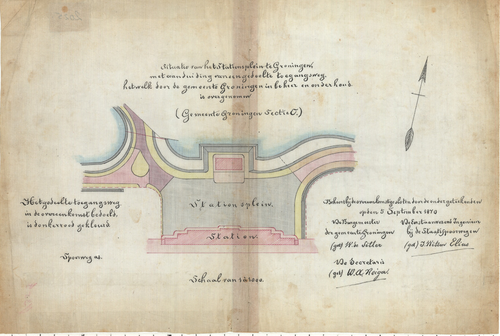 Situatie van het Stationsplein te Groningen,
met aanduiding van een gedeelte toegangsweg,
hetwelk door de gemeente Groningen in beheer en onderhoud
is overgenomen
(Gemeente Groningen Sectie C.)
Het gedeelte toegangsweg
in de overeenkomst bedoeld,
is donkerrood gekleurd.
Spoorweg as.
Stationsplein.
Station.
Schaal van 1 à
Behoort bij de overeenkomst door de ondergeteekenden
op den 5 September 1870
De Burgemeester
der gemeente Groningen
(get) W. de Sitter
De Eerstaanwezend Ingenieur
bij de Staatsspoorwegen
(get) J. Willem
De Secretaris
(get)